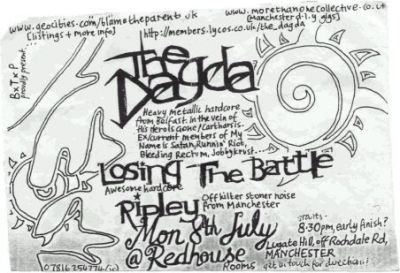 www.geocities.com/blametheparent uk
[listings + more info]
www.morethanonecollective.co.uk
[Manchester d.i.y gigs]
http://members.lycos.co.uk/the_dagda
BxTxP
proudly present...
The
Dagda
Heavy metallic hardcore
from Belfast. In the vein of
His Hero Is Gone/Catharsis.
Ex/current members of My
Name is Satan, Runnin' Riot,
Bleeding Rectum, Jobbykrust...
Losing The Battle
Awesome hardcore
Ripley
Off kilter stoner noise
from Manchester
Mon 8th July
@ Redhouse
Rooms
starts -
8:30pm, early finish?
Lugate Hill, off Rochdale Rd,
MANCHESTER
get in touch for directions!